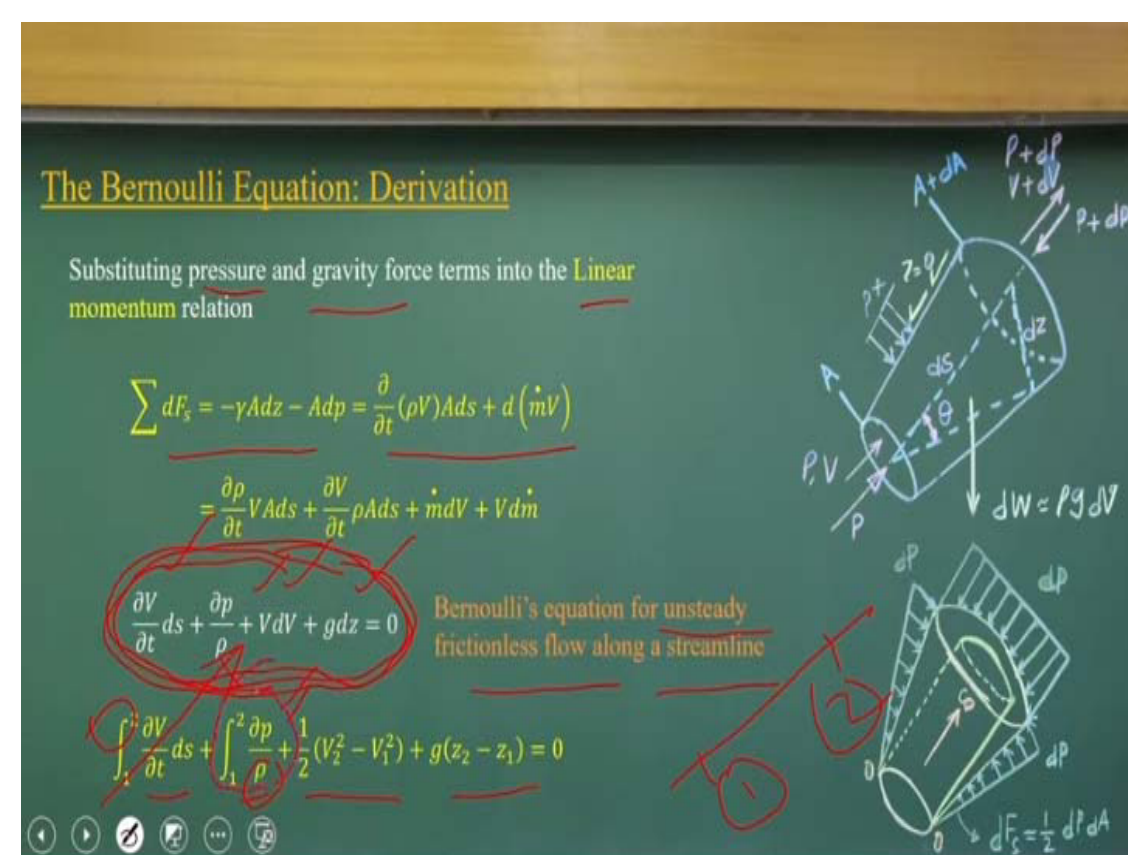 The Bernoulli Equation: Derivation
Substituting pressure and gravity force terms into the Linear
momentum relation
∑ dFₛ = −γAdz − Adp = ∂/∂t (ρV)Ads + d(ṁV)
= ∂ρ/∂t VAds + ∂V/∂t ρAds + ṁdV + Vdṁ
∂V/∂t ds + ∂p/ρ + VdV + gdz = 0
Bernoulli's equation for unsteady
frictionless flow along a streamline
∫₁² ∂V/∂t ds + ∫₁² ∂p/ρ + 1/2 (V₂² − V₁²) + g(z₂ − z₁) = 0
1
2
P+dP
V+dV
P+dP
A+dA
P+
ds
dz
A
θ
P,V
P
dW ≈ ρg dV
dP
dP
S
dP
0
0
dFₛ = 1/2 dP dA